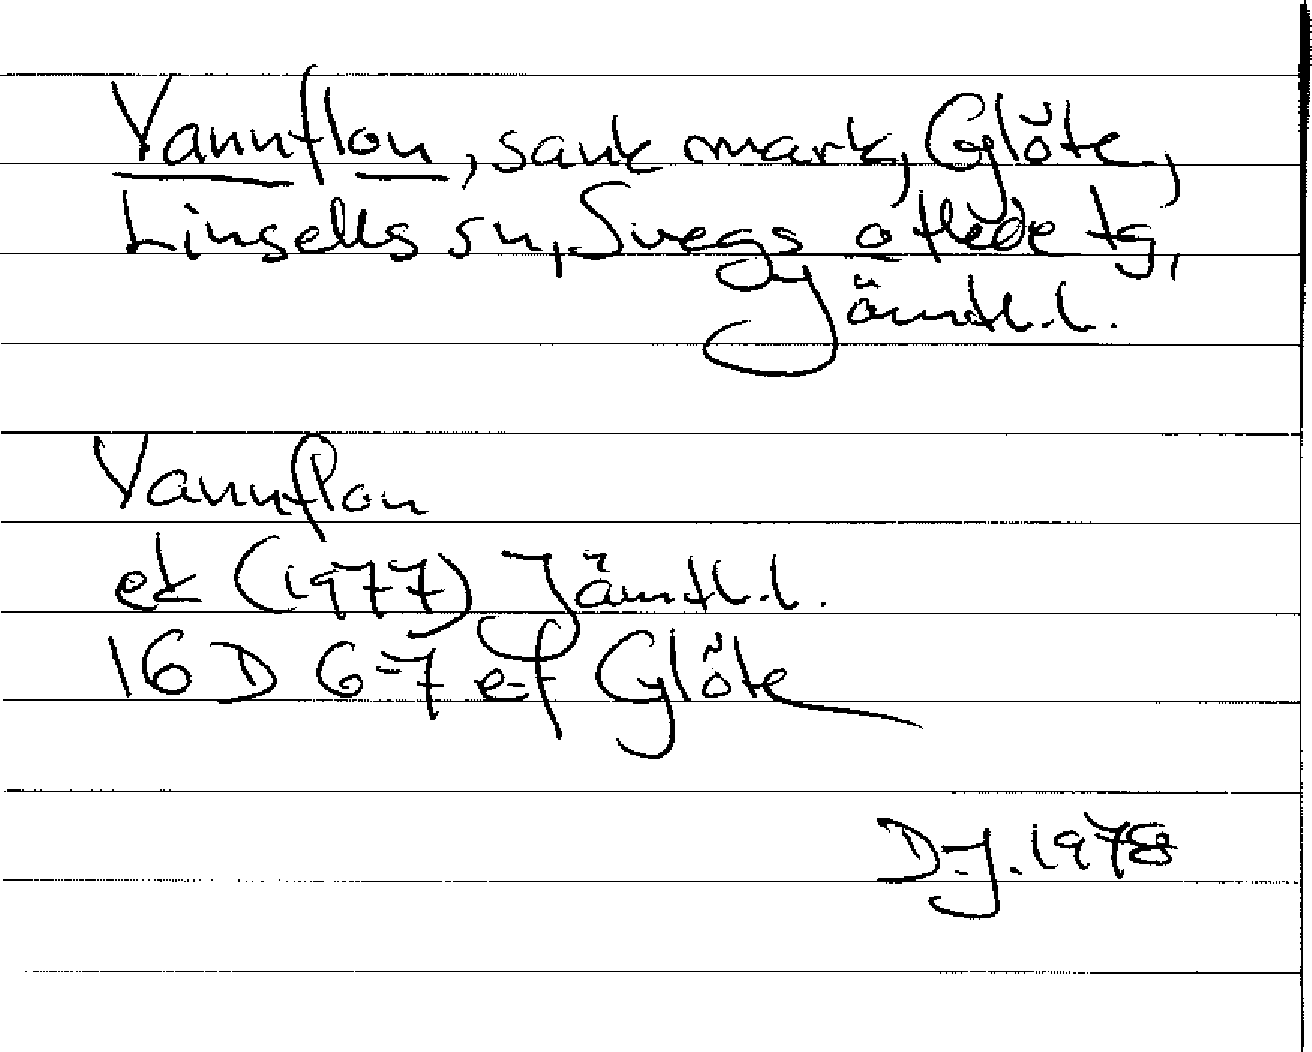 Vannflon, sank mark, Glöte,
Linsells sn, Svegs o Hede tg,
Jämtl.l.
Vannflon
ek (1977) Jämtl.l.
16 D 6-7 e-f Glöte
D.J. 1978